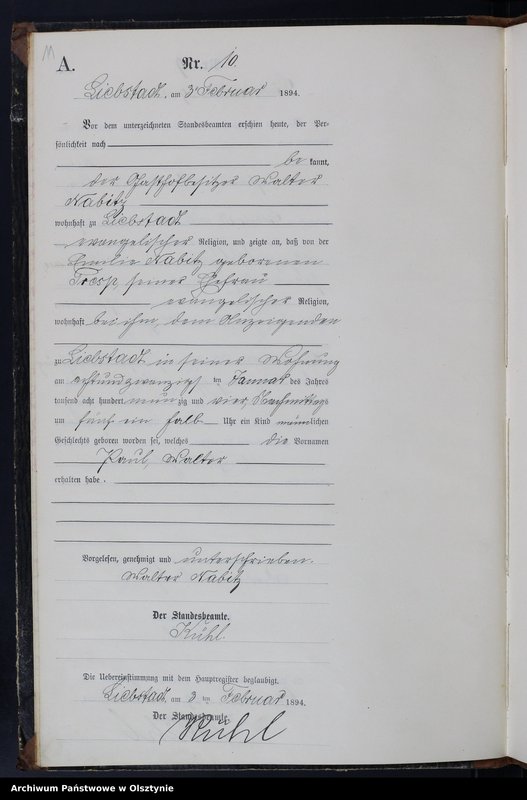 11
A.
Nr. 10.
Liebstadt, am 3 Februar 1894.
Vor dem unterzeichneten Standesbeamten erschien heute, der Per-
sönlichkeit nach
be kannt,
der Gasthofbesitzer Walter
Nabitz
wohnhaft zu Liebstadt
evangelischer Religion, und zeigte an, daß von der
Emilie Nabitz geborenen
seiner Ehefrau
evangelischer Religion,
wohnhaft bei ihm, dem Anzeigenden
zu Liebstadt in seiner Wohnung
am achtundzwanzigsten Januar des Jahres
tausend acht hundert neunzig und vier, Nachmittags
um fünf ein halb Uhr ein Kind männlichen
Geschlechts geboren worden sei, welches die Vornamen
Paul, Walter
erhalten habe.
Vorgelesen, genehmigt und unterschrieben.
Walter Nabitz
Der Standesbeamte.
Kühl.
Die Uebereinstimmung mit dem Hauptregister beglaubigt.
Liebstadt, am 3 ten Februar 1894.
Der Standesbeamte.
Kühl
Archiwum Państwowe w Olsztynie